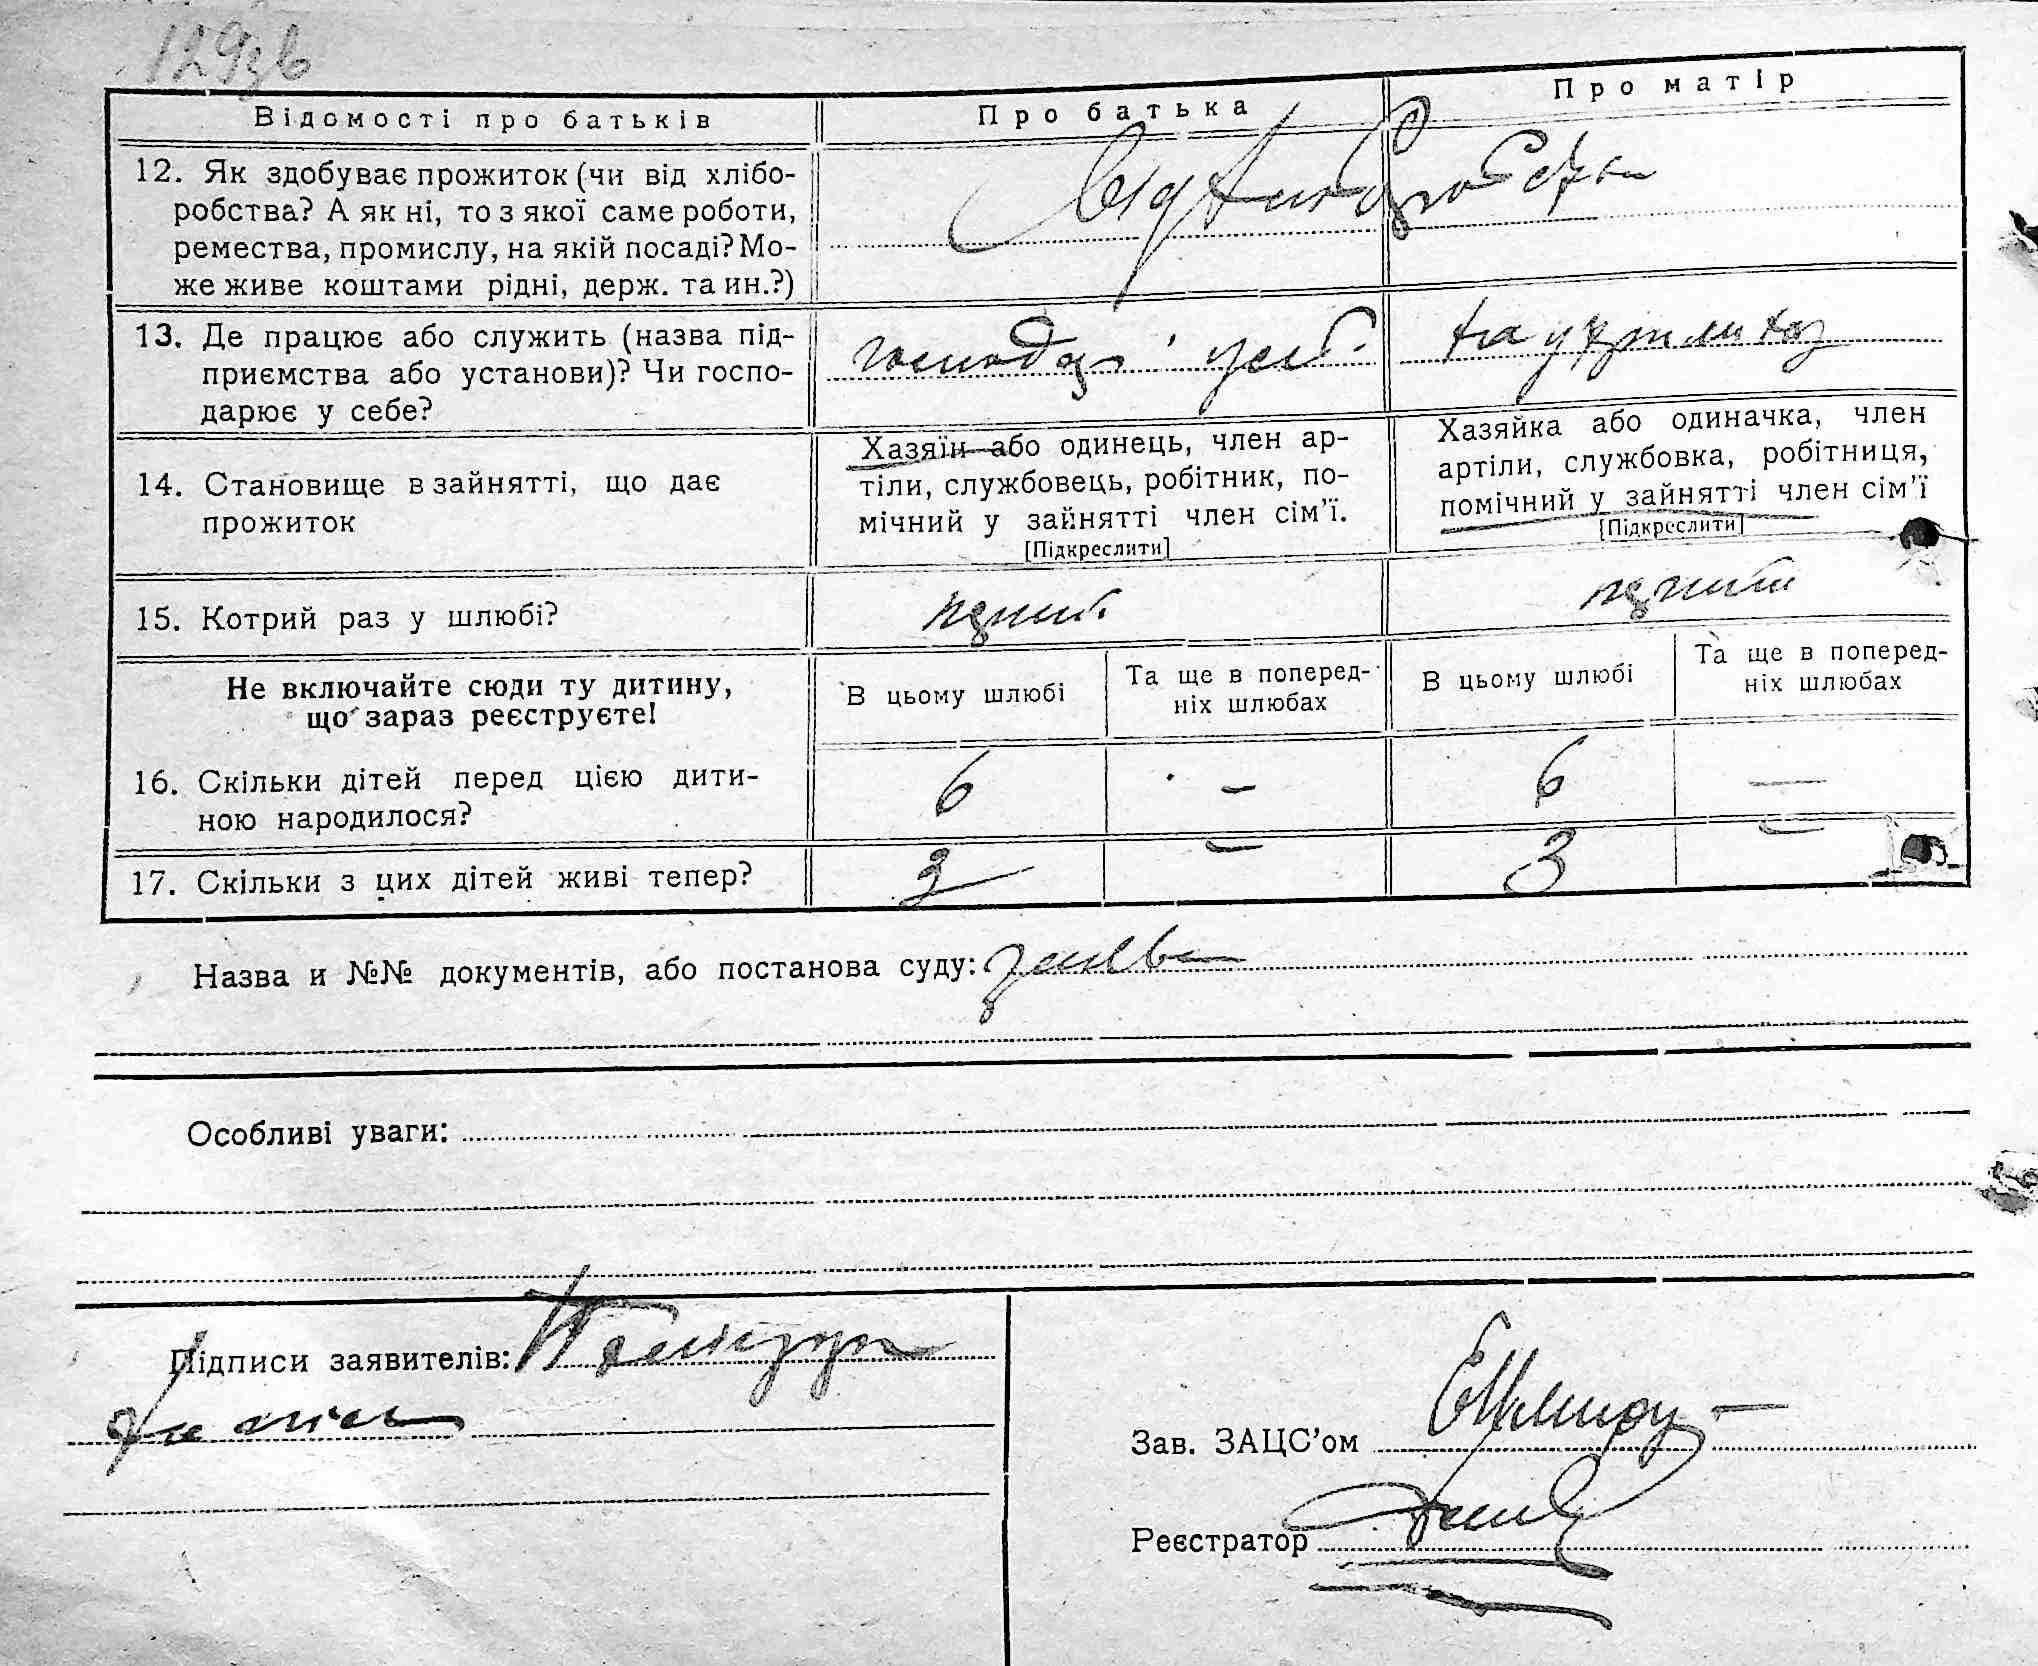 129зв
Відомості про батьків
Про батька
Про матір
12. Як здобуває прожиток (чи від хлібо-
робства? А як ні, то з якої саме роботи,
ремества, промислу, на якій посаді? Мо-
же живе коштами рідні, держ. та ин.?)
від хліборобства
13. Де працює або служить (назва під-
приємства або установи)? Чи госпо-
дарює у себе?
господар у себ.
на утриман
14. Становище в зайнятті, що дає
прожиток
Хазяїн або одинець, член ар-
тіли, службовець, робітник, по-
мічний у зайнятті член сім'ї.
[Підкреслити]
Хазяйка або одиначка, член
артіли, службовка, робітниця,
помічний у зайнятті член сім'ї
[Підкреслити]
15. Котрий раз у шлюбі?
перший
перший
Не включайте сюди ту дитину,
що зараз реєструєте!
В цьому шлюбі
Та ще в поперед-
ніх шлюбах
В цьому шлюбі
Та ще в поперед-
ніх шлюбах
16. Скільки дітей перед цією дити-
ною народилося?
6 – 6 –
17. Скільки з цих дітей живі тепер?
3 – 3 –
Назва и №№ документів, або постанова суду: заява
Особливі уваги:
Підписи заявителів:
Зав. ЗАЦС'ом
Реєстратор